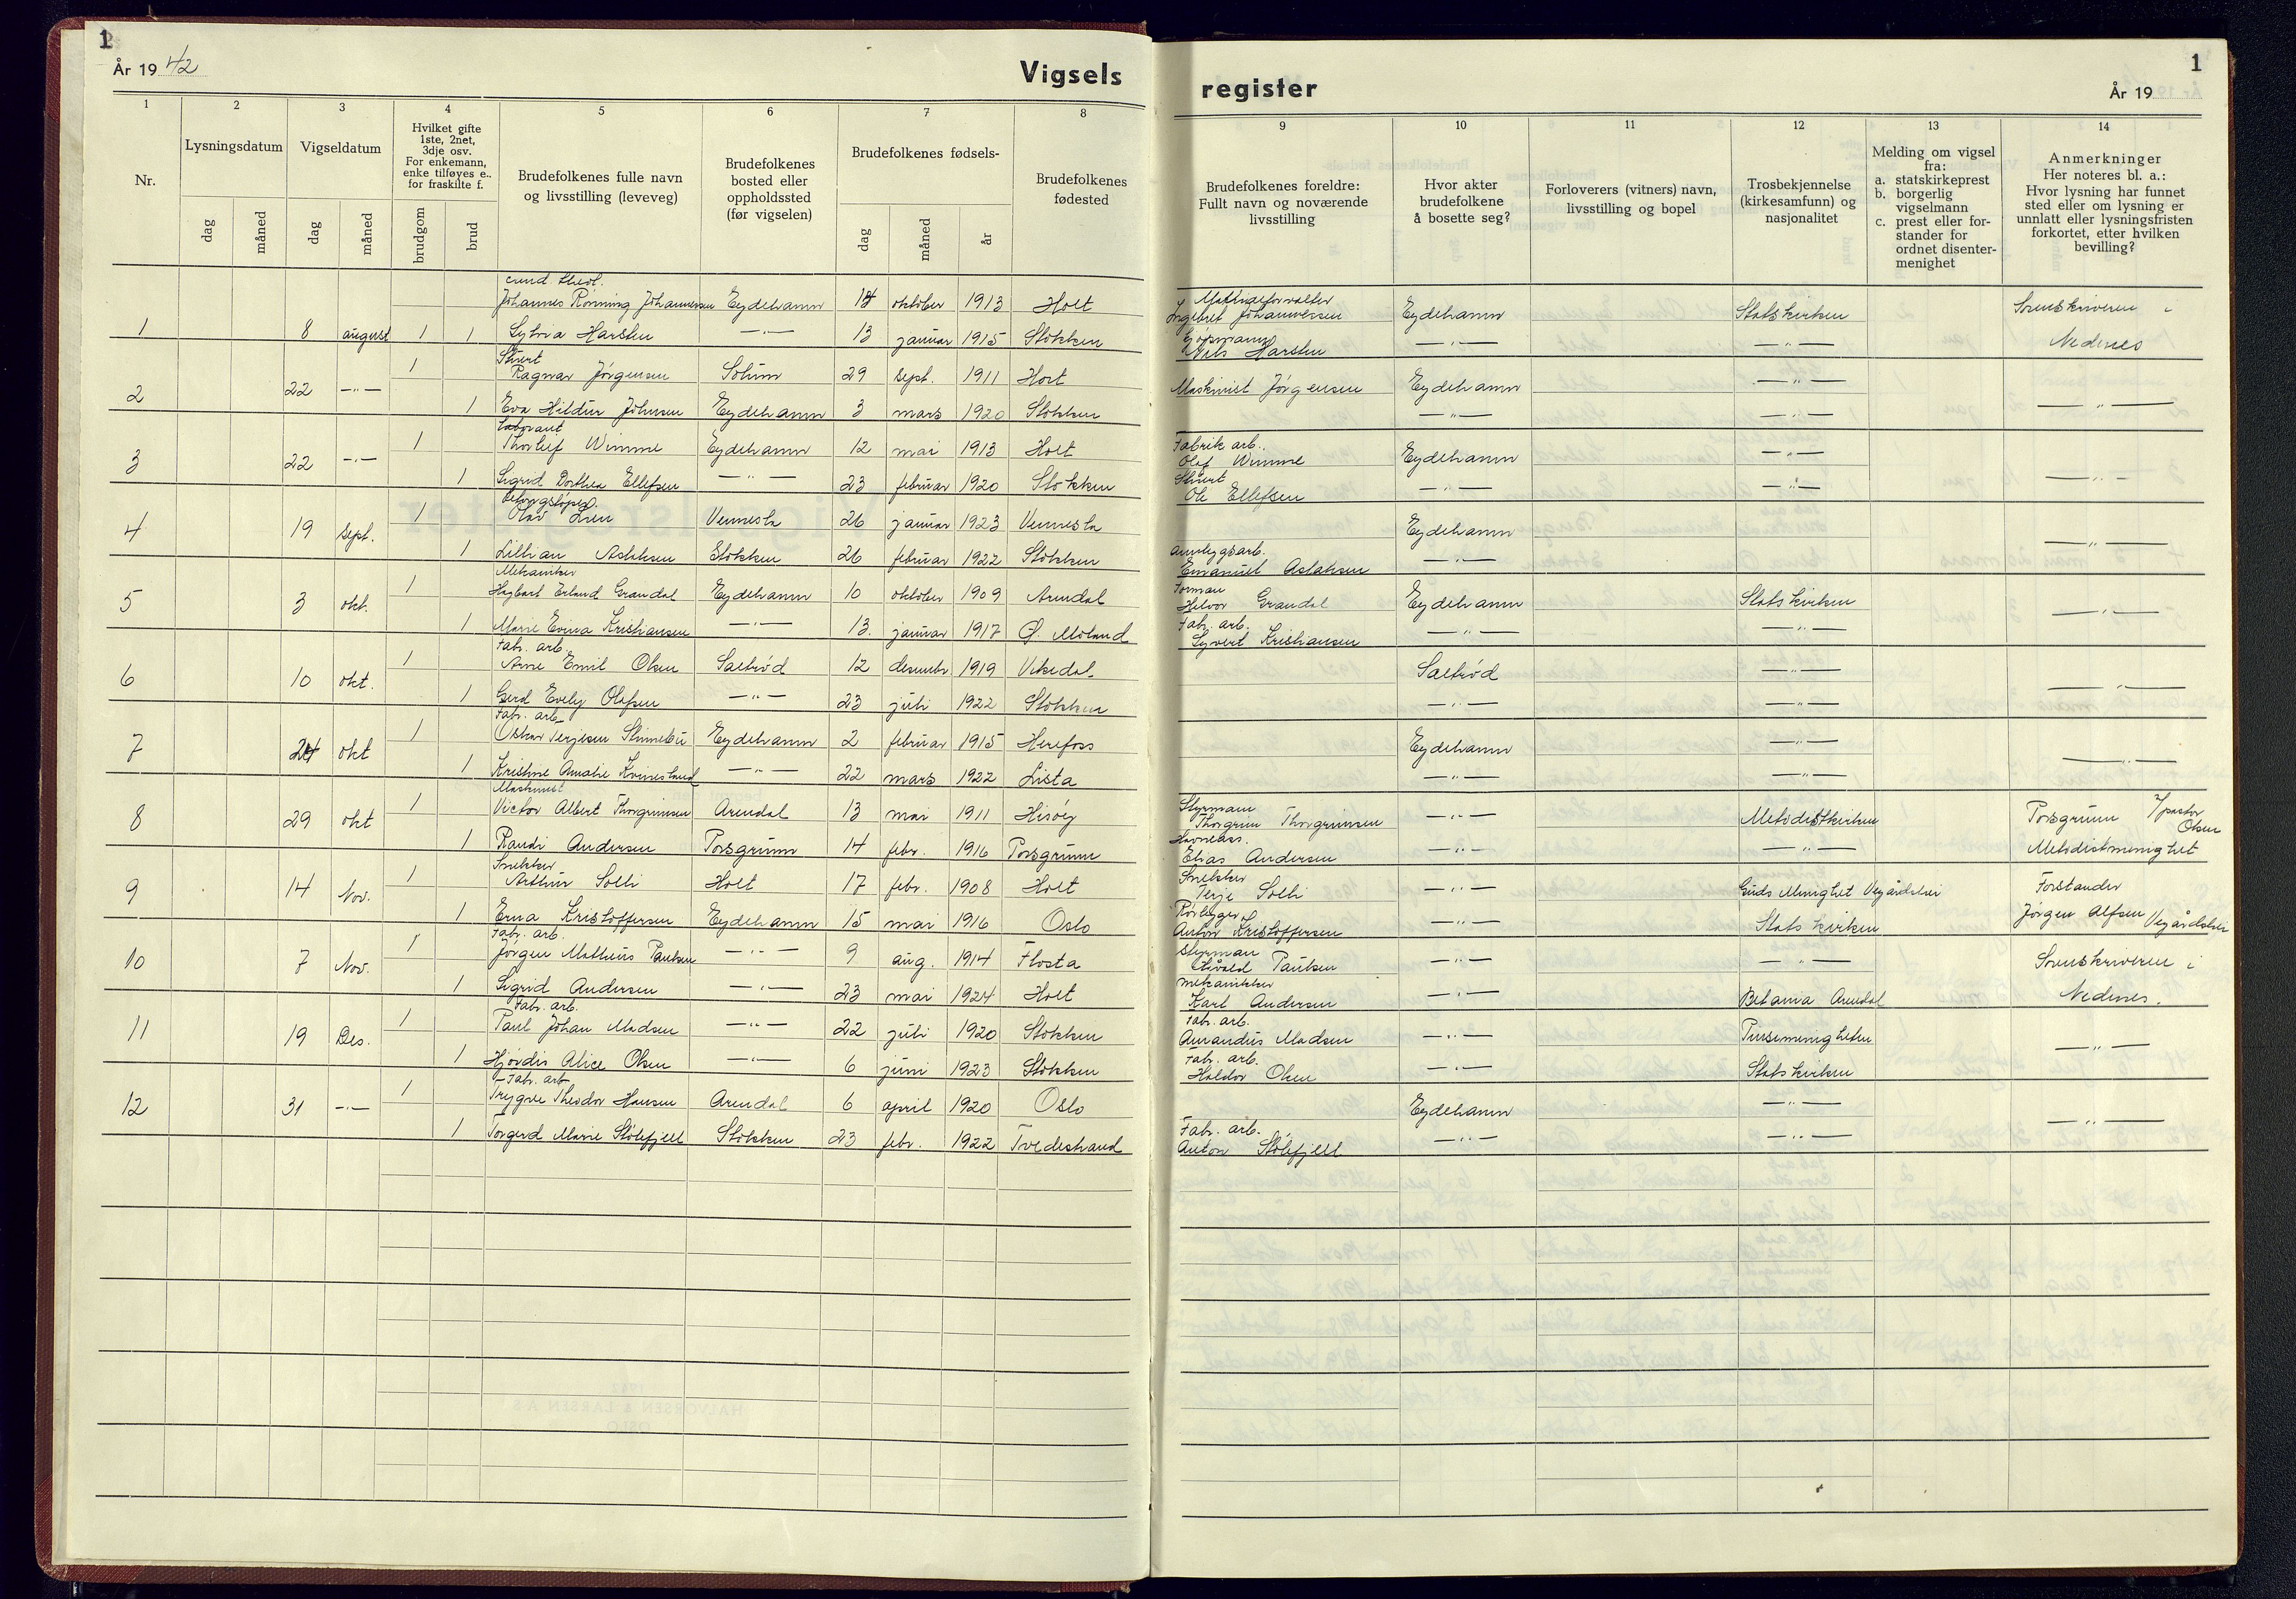 1
År 19 42
Vigsels
register
År 19
1
1 2 3 4 5 6 7 8 9 10 11 12 13 14
Nr.
Lysningsdatum
dag måned
Vigseldatum
dag måned
Hvilket gifte
1ste, 2net,
3dje osv.
For enkemann,
enke tilføyes e..
for fraskilte f.
brudgom brud
Brudefolkenes fulle navn
og livsstilling (leveveg)
Brudefolkenes
bosted eller
oppholdssted
(før vigselen)
Brudefolkenes fødsels-
dag måned år
Brudefolkenes
fødested
Brudefolkenes foreldre:
Fullt navn og noværende
livsstilling
Hvor akter
brudefolkene
å bosette seg?
Forloverers (vitners) navn,
livsstilling og bopel
Trosbekjennelse
(kirkesamfunn) og
nasjonalitet
Melding om vigsel
fra:
a. statskirkeprest
b. borgerlig
vigselmann
c. prest eller for-
stander for
ordnet disenter-
menighet
Anmerkninger
Her noteres bl. a.:
Hvor lysning har funnet
sted eller om lysning er
unnlatt eller lysningsfristen
forkortet, etter hvilken
bevilling?
cand. theol.
Johannes Rønning Johannessen Eydehamn 14 oktober 1913 Holt Ingebret Johannessen Eydehamn Statskirken Sorenskriveren i
1 8 august 1 1 Harsten —"— 13 januar 1915 Stokken Nils Harsten —"— —"— Nedenes
Stuert
1 Ragnar Jørgensen 29 sept. 1911 Holt Maskinist Jørgensen Eydehamn —"—
2 22 —"— 1 Eva Hildur Johnsen Eydehamn 3 mars 1920 Stokken —"— —"—
Laborant Fabrik arb.
1 Thorleif Wimme Eydehamn 12 mai 1913 Holt Olaf Wimme Eydehamn —"—
3 22 —"— 1 Sigrid Dorthea Ellefsen —"— 23 februar 1920 Stokken Stuert Ole Ellefsen —"— —"— —"—
1 Olav Vennesla 26 januar 1923 Vennesla Eydehamn
4 19 sept. 1 Lillian Aslaksen Stokken 26 februar 1922 Stokken Anleggsarb. Emanuel Aslaksen —"— —"—
Mekaniker Forman
1 Hagbart Erland Grandal Eydehamn 10 oktober 1909 Arendal Halvor Grandal Eydehamn Statskirken
5 3 okt. 1 Marie Evina Kristiansen —"— 13. januar 1917 Ø. Moland Fab. arb. Syvert Kristiansen —"— —"— —"—
Fab. arb.
1 Arne Emil Olsen Saltrød 12 desember 1919 Vikedal Saltrød —"—
6 10 okt. 1 Gerd Evely Olsen —"— 23 juli 1922 Stokken —"— —"— —"—
Fab. arb.
1 Oskar Terjesen Eydehamn 2 februar 1915 Herefoss Eydehamn —"—
7 24 okt 1 Kristine Amalie Kvinesland —"— 22 mars 1922 Lista —"— —"— —"—
Maskinist Styrmann
1 Victor Albert Thorgrimsen Arendal 13 mai 1911 Hisøy Thorgrim Thorgrimsen —"— Metodistkirken Porsgrunn v/ pastor Olsen
8 29 okt 1 Randi Andersen Porsgrunn 14 febr. 1916 Porsgrunn Elias Andersen —"— —"— Metodistmenighet
Snekker Snekker
1 Arthur Solli Holt 17 febr. 1908 Holt Terje Solli —"— Guds Menighet Vegårdshei Forstander
9 14 Nov. 1 Erna Kristoffersen Eydehamn 15 mai 1916 Oslo Rørlegger Anton Kristoffersen —"— Statskirken Jørgen Alfsen Vegårdshei
Fab. arb. Styrman
1 Jørgen Matheus Paulsen —"— 9 aug. 1914 Flosta Paulsen —"— —"— Sorenskriveren i
10 7 Nov. 1 Sigrid Andersen —"— 23 mai 1924 Holt mekanikker Karl Andersen —"— Betania Arendal Nedenes.
Fab. arb. Fab. arb.
1 Paul Johan Madsen —"— 22 juli 1920 Stokken Amandus Madsen —"— Pinsemenigheten
11 19 Des. 1 Hjørdis Alice Olsen —"— 6 juni 1923 Stokken Fab. arb. Haldor Olsen —"— Statskirken —"—
Fab. arb.
1 Trygve Theodor Hansen Arendal 6 april 1920 Oslo Eydehamn —"—
12 31 —"— 1 Torgerd Marie Stølefjell Stokken 23 febr. 1922 Tvedestrand Fab. arb. Anton Stølefjell —"— —"— —"—